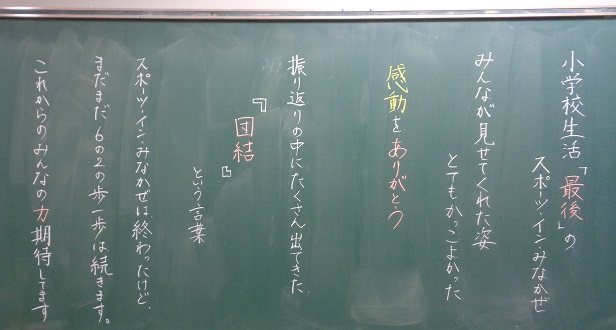 小学校生活「最後」の
スポーツ・イン・みなかぜ
みんなが見せてくれた姿
とてもかっこよかった
感動をありがとう
振り返りの中にたくさん出てきた
『団結』
という言葉
スポーツ・イン・みなかぜは終わったけど、
まだまだ6の2の歩一歩は続きます。
これからのみんなの力期待してます